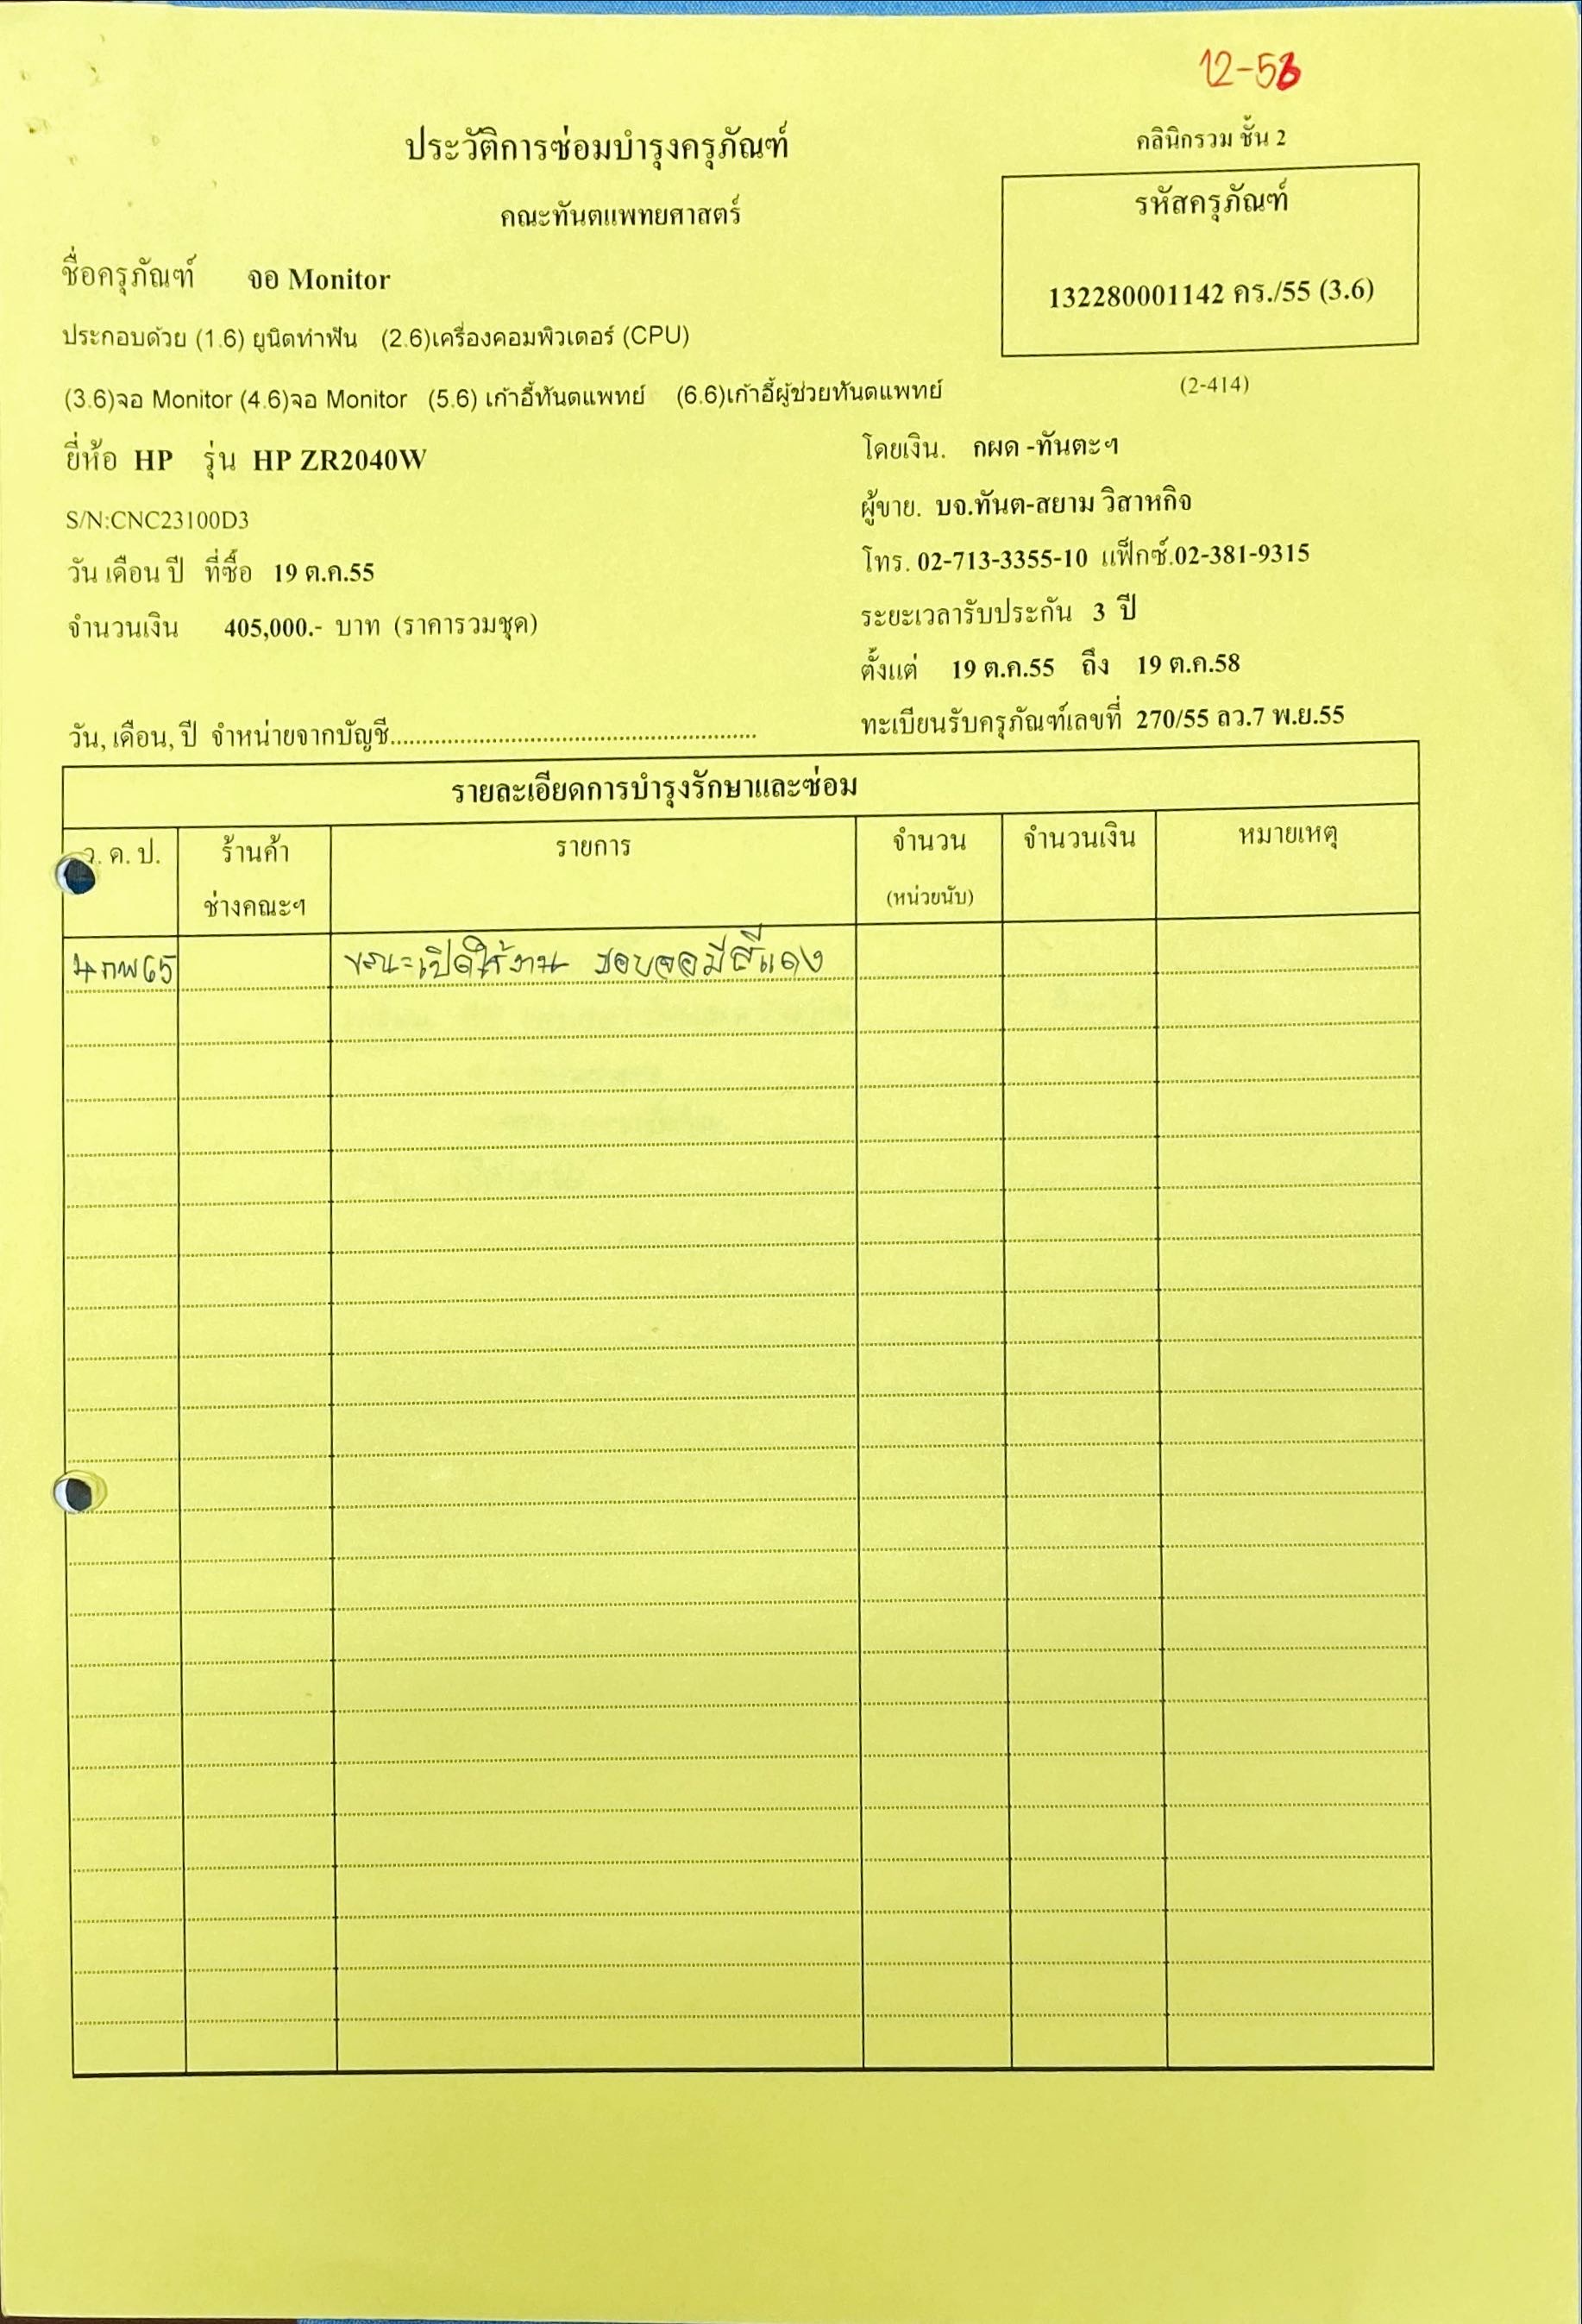 12-58
คลินิกรวม ชั้น 2
ประวัติการซ่อมบำรุงครุภัณฑ์
คณะทันตแพทยศาสตร์
รหัสครุภัณฑ์
132280001142 คร./55 (3.6)
(2-414)
ชื่อครุภัณฑ์ จอ Monitor
ประกอบด้วย (1.6) ยูนิตทำฟัน (2.6)เครื่องคอมพิวเตอร์ (CPU)
(3.6)จอ Monitor (4.6)จอ Monitor (5.6) เก้าอี้ทันตแพทย์ (6.6)เก้าอี้ผู้ช่วยทันตแพทย์
ยี่ห้อ HP รุ่น HP ZR2040W
S/N:CNC23100D3
วัน เดือน ปี ที่ซื้อ 19 ต.ค.55
จำนวนเงิน 405,000.- บาท (ราคารวมชุด)
โดยเงิน. กผด -ทันตะฯ
ผู้ขาย. บจ.ทันต-สยาม วิสาหกิจ
โทร. 02-713-3355-10 แฟ็กซ์.02-381-9315
ระยะเวลารับประกัน 3 ปี
ตั้งแต่ 19 ต.ค.55 ถึง 19 ต.ค.58
วัน, เดือน, ปี จำหน่ายจากบัญชี........................................................
ทะเบียนรับครุภัณฑ์เลขที่ 270/55 ลว.7 พ.ย.55
รายละเอียดการบำรุงรักษาและซ่อม
ว. ด. ป. ร้านค้า รายการ จำนวน จำนวนเงิน หมายเหตุ
ช่างคณะฯ (หน่วยนับ)
4 กพ 65 ขณะเปิดใช้งาน ขอบจอมีสีแดง